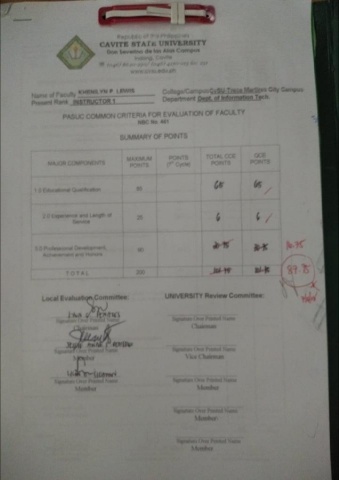 Republic of the Philippines
CAVITE STATE UNIVERSITY
Don Severino de las Alas Campus
Indang, Cavite
www.cvsu.edu.ph
Name of Faculty
College/Campus City Campus
Present Rank INSTRUCTOR 1
Department Dept. of Information Tech.
PASUC COMMON CRITERIA FOR EVALUATION OF FACULTY
NBC No. 461
SUMMARY OF POINTS
MAJOR COMPONENTS MAXIMUM POINTS POINTS (1st Cycle) TOTAL CCE POINTS QCE POINTS
1.0 Educational Qualification 85 65 65
2.0 Experience and Length of Service 25 6 6
3.0 Professional Development, Achievement and Honors 90
TOTAL 200
Local Evaluation Committee:
UNIVERSITY Review Committee:
Signature Over Printed Name
Chairman
Signature Over Printed Name
Chairman
Signature Over Printed Name
Member
Signature Over Printed Name
Vice Chairman
Signature Over Printed Name
Member
Signature Over Printed Name
Member
Signature Over Printed Name
Member
Signature Over Printed Name
Member